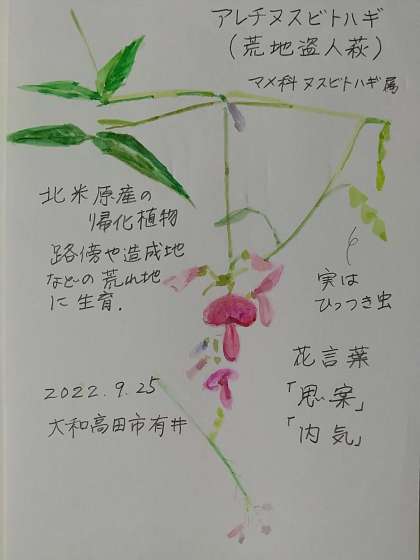 アレチヌスビトハギ
(荒地盗人萩)
マメ科 ヌスビトハギ属
北米原産の
帰化植物
路傍や造成地
などの荒れ地
に生育.
実は
ひっつき虫
花言葉
「思案」
「内気」
2022.9.25
大和高田市有井